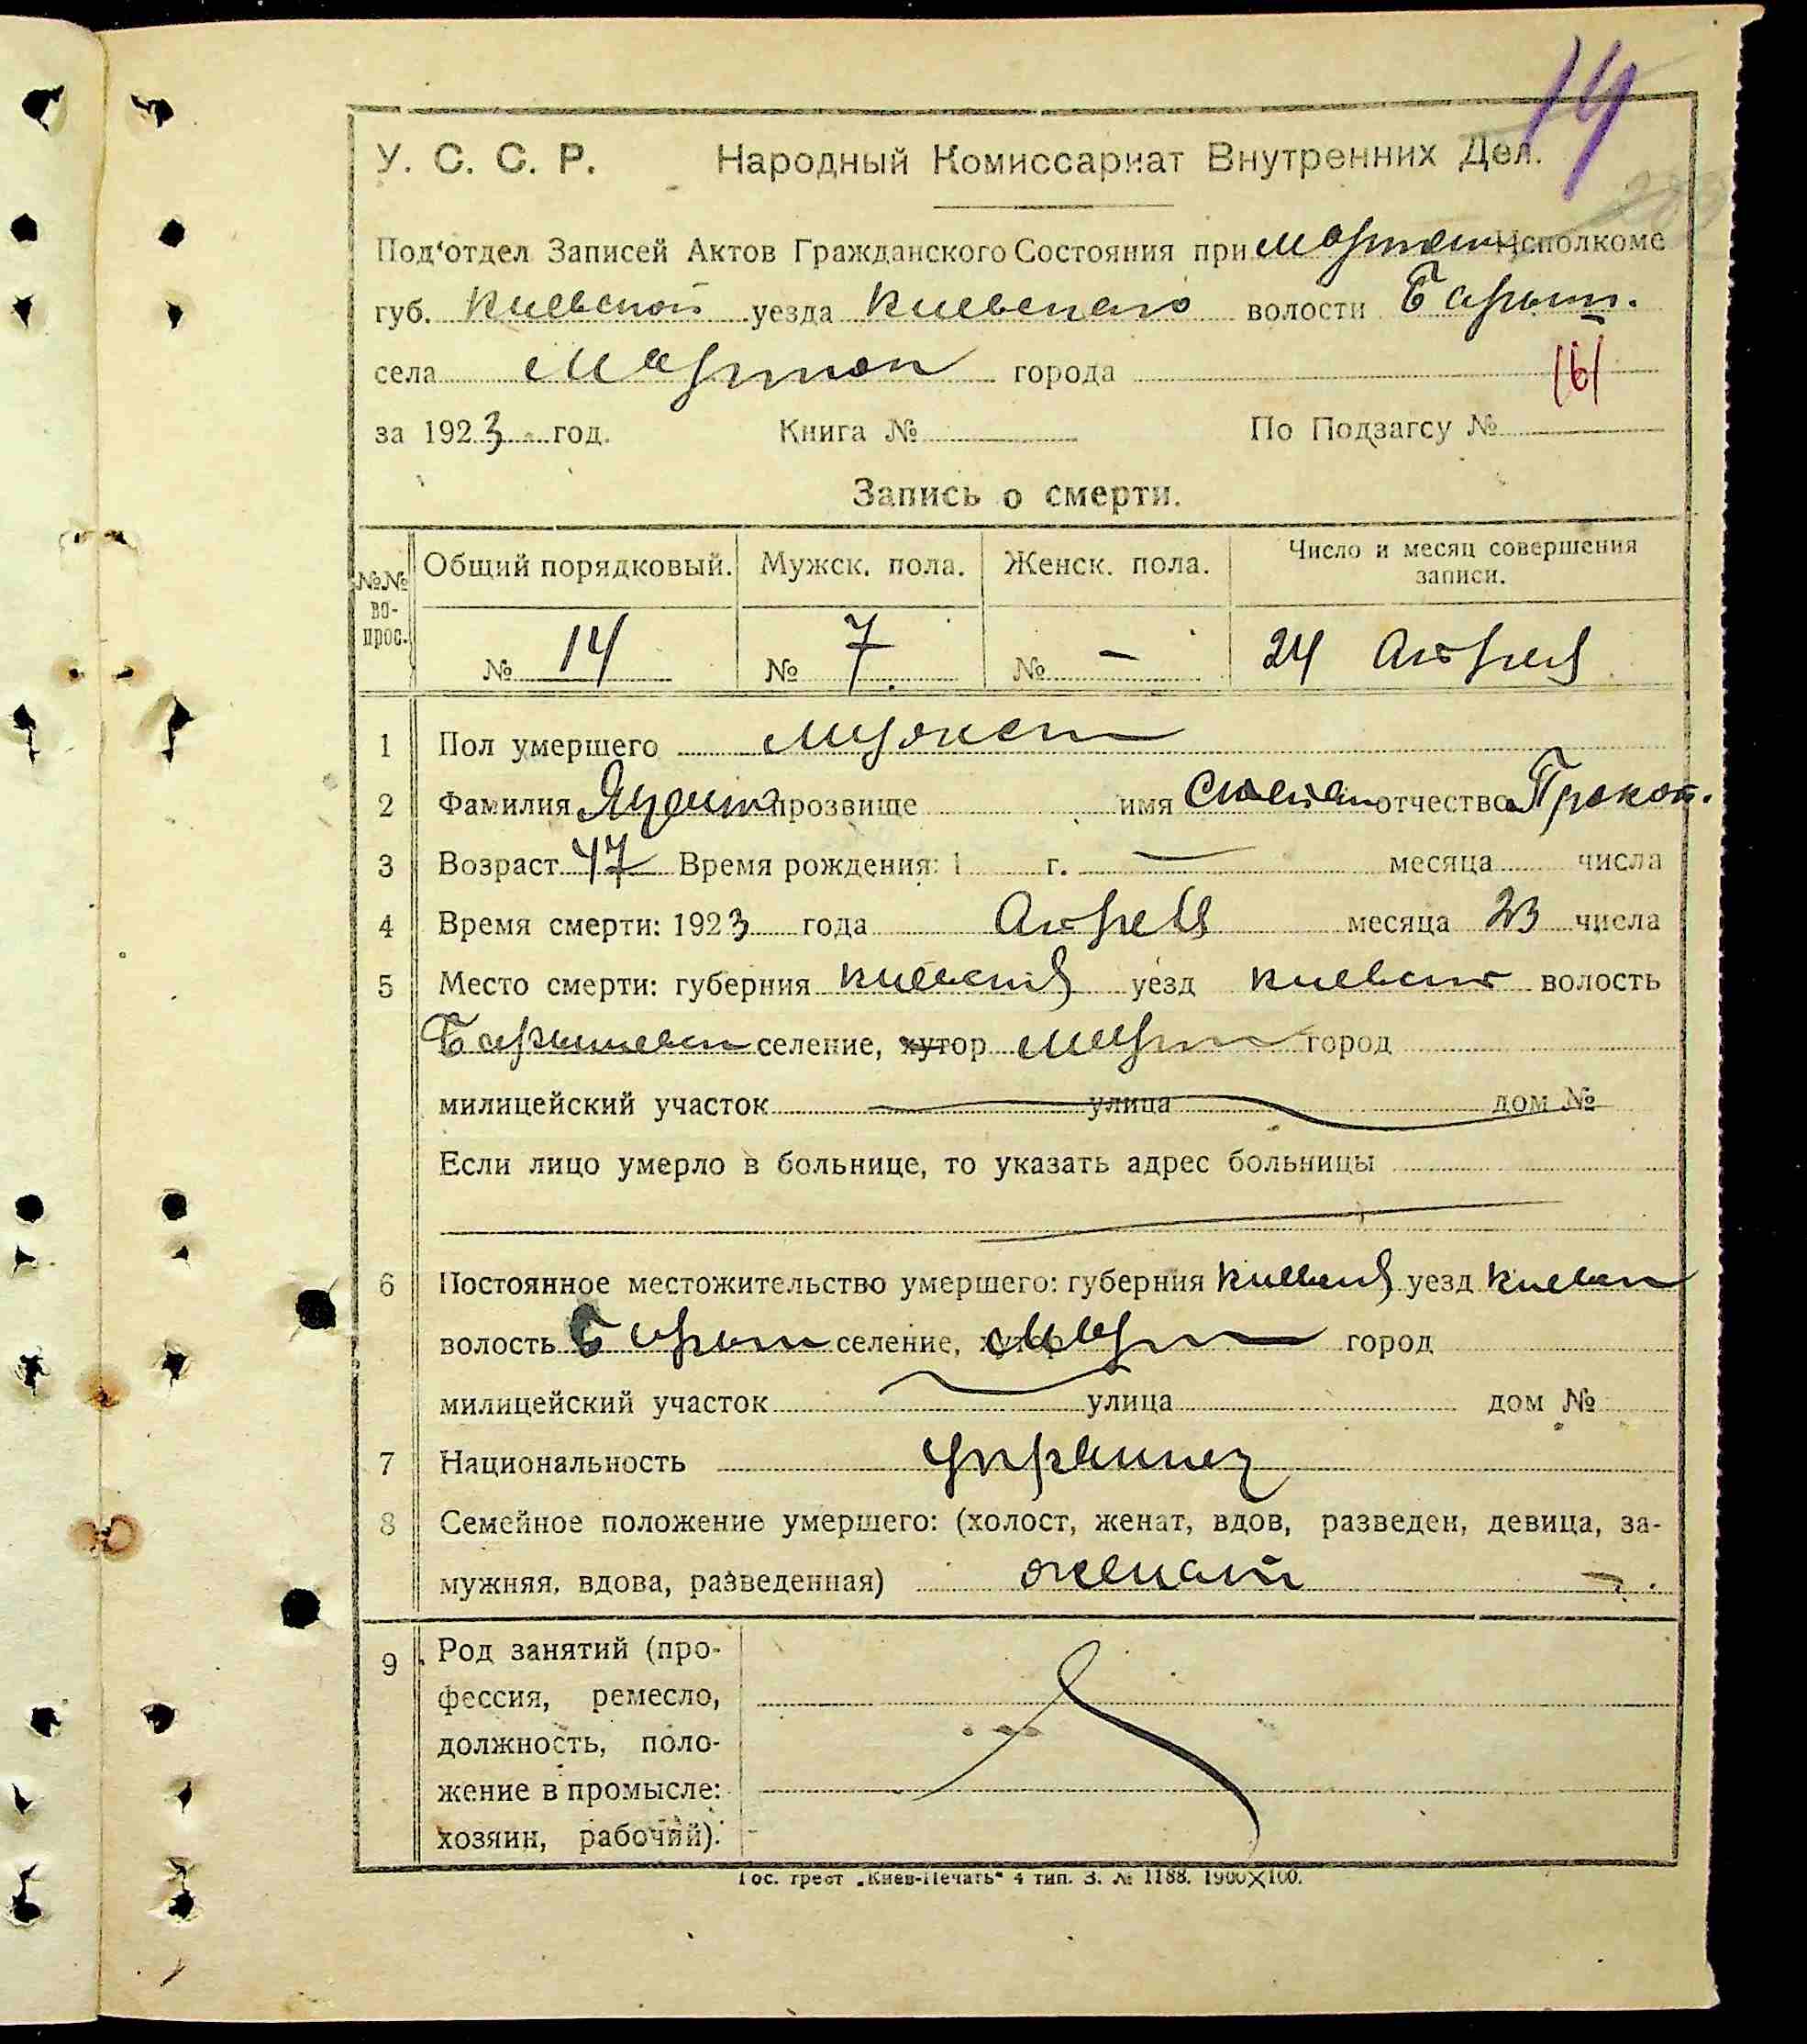 14
У. С. С. Р. Народный Комиссариат Внутренних Дел.
Под'отдел Записей Актов Гражданского Состояния при Исполкоме
губ. Киевской уезда Киевскаго волости Барыш.
села города 161
за 1923 год. Книга № По Подзагсу №
Запись о смерти.
№№ во-прос. Общий порядковый. Мужск. пола. Женск. пола. Число и месяц совершения записи.
№ 14 № 7 № — 24 Апреля
1 Пол умершего мужск
2 Фамилия прозвище имя Степан отчество Прокоп.
3 Возраст 47 Время рождения: 1 г. — месяца числа
4 Время смерти: 1923 года Апреля месяца 23 числа
5 Место смерти: губерния Киевская уезд Киевск волость
Барышевск селение, хутор Март город
милицейский участок улица дом №
Если лицо умерло в больнице, то указать адрес больницы
6 Постоянное местожительство умершего: губерния Киевская уезд Киевск
волость Барыш селение, хутор Март город
милицейский участок улица дом №
7 Национальность Украинец
8 Семейное положение умершего: (холост, женат, вдов, разведен, девица, за-
мужняя, вдова, разведенная) женат
9 Род занятий (про-
фессия, ремесло,
должность, поло-
жение в промысле:
хозяин, рабочий).
Гос. трест „Киев-Печать" 4 тип. З. № 1188. 1900×100.